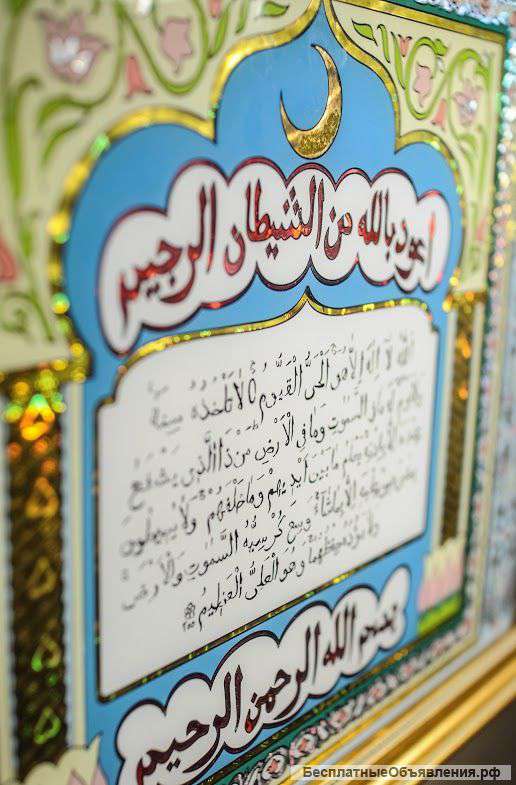 اعوذ بالله من الشيطان الرجيم
اَللهُ لَآ اِلٰهَ اِلَّا هُوَ الْحَيُّ الْقَيُّومُ لَا تَأْخُذُهُ سِنَةٌ
وَلَا نَوْمٌ لَهُ مَا فِي السَّمٰوٰتِ وَمَا فِي الْاَرْضِ مَنْ ذَا الَّذِي يَشْفَعُ
عِنْدَهُ اِلَّا بِاِذْنِهِ يَعْلَمُ مَا بَيْنَ اَيْدِيهِمْ وَمَا خَلْفَهُمْ وَلَا يُحِيطُونَ
بِشَيْءٍ مِنْ عِلْمِهِ اِلَّا بِمَا شَآءَ وَسِعَ كُرْسِيُّهُ السَّمٰوٰتِ وَالْاَرْضَ
وَلَا يَؤُدُهُ حِفْظُهُمَا وَهُوَ الْعَلِيُّ الْعَظِيمُ
بسم الله الرحمن الرحيم
БесплатныеОбъявления.рф